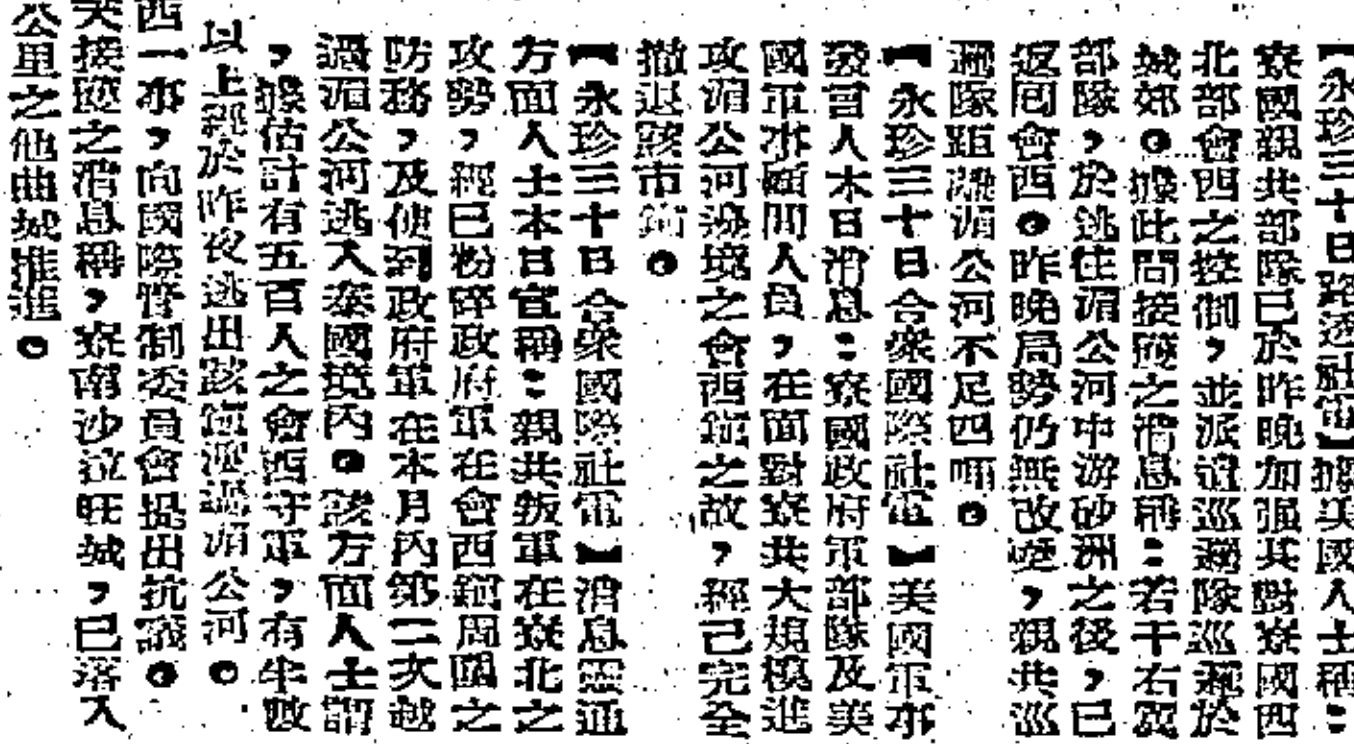 【永珍三十日路透社電】據美國人士稱：
寮國親共部隊已於昨晚加强其對寮國西
北部會西之控制，並派遣巡邏隊巡邏於
城郊。據此間接獲之消息稱：若干右翼
部隊，於逃往湄公河中游砂洲之後，已
返囘會西。昨晚局勢仍無改變，親共巡
邏隊距離湄公河不足四哩。
【永珍三十日合衆國際社電】美國軍事
發言人本日消息：寮國政府軍部隊及美
國軍事顧問人員，在面對寮共大規模進
攻湄公河邊境之會西鎭之故，經已完全
撤退該市鎭。
【永珍三十日合衆國際社電】消息靈通
方面人士本日宣稱：親共叛軍在寮北之
攻勢，經已粉碎政府軍在會西鎭周圍之
防務，及使到政府軍在本月內第二次越
過湄公河逃入泰國境內。該方面人士謂
，據估計有五百人之會西守軍，有半數
以上經於昨夜逃出該鎭渡過湄公河。
西一事，向國際管制委員會提出抗議。
接獲之消息稱，寮南沙拉旺城，已落入
公里之他曲城推進。